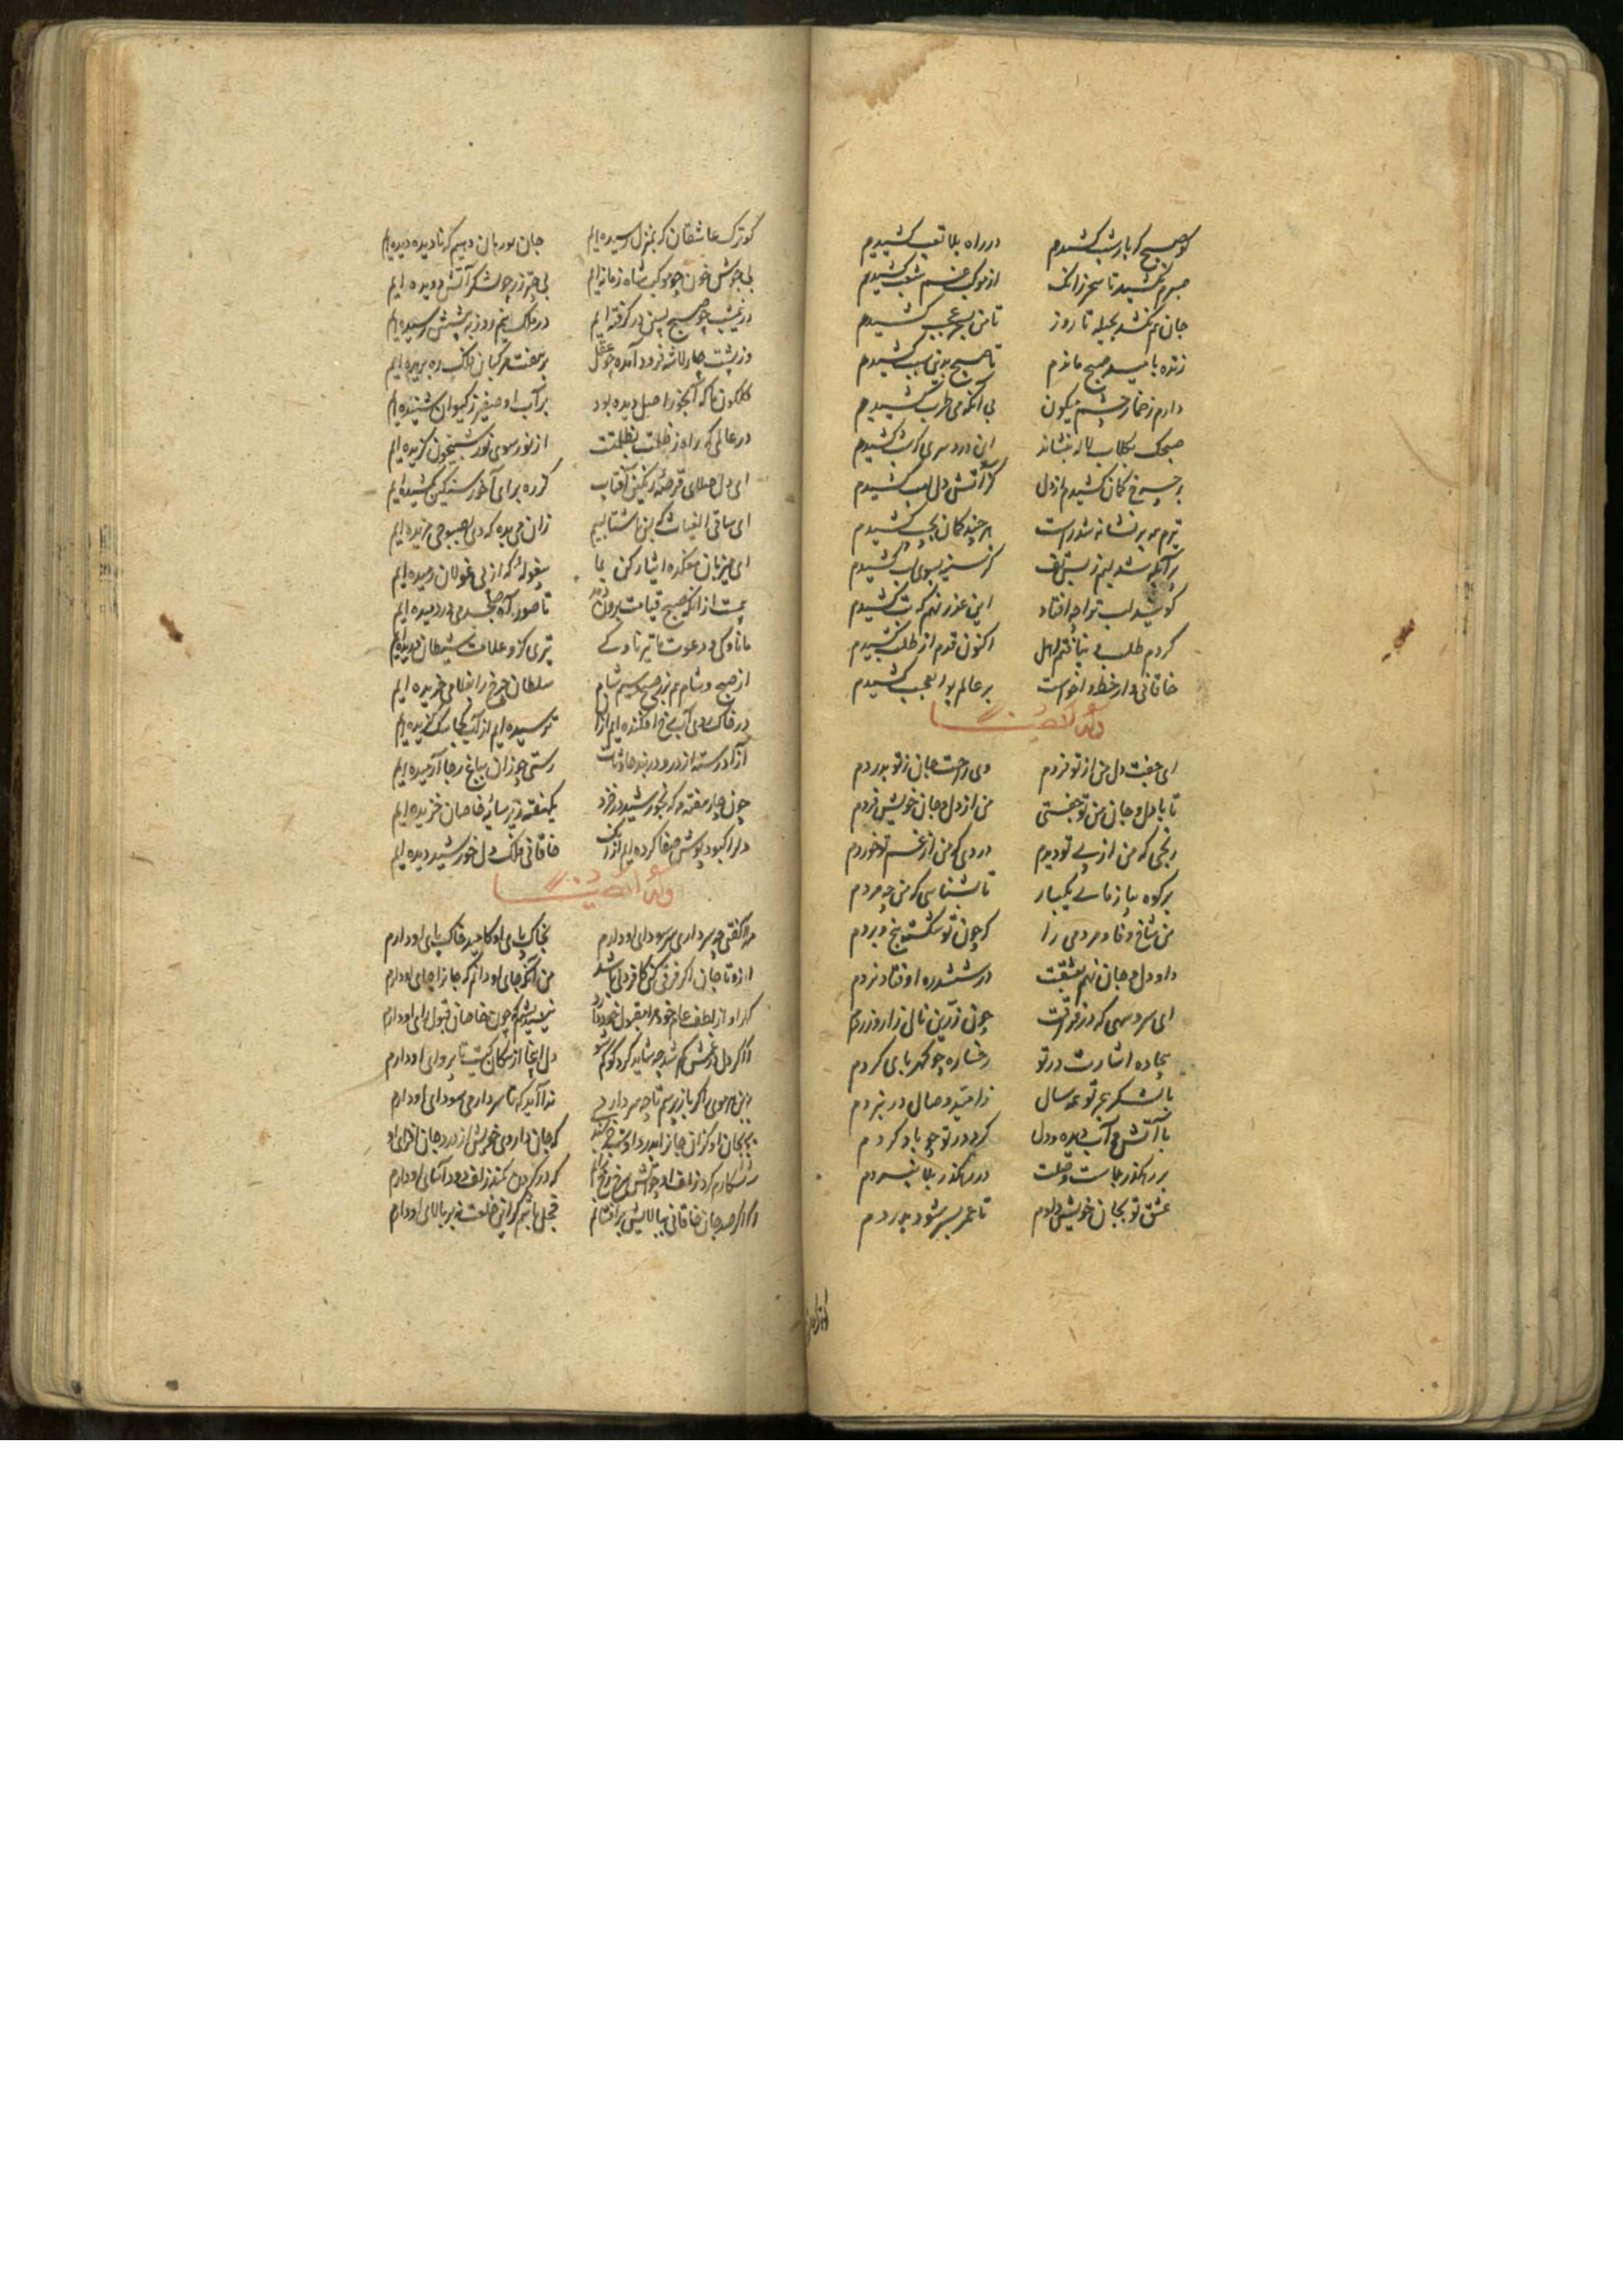 کو صبح که بار شب کشیدم در راه بلا تعب کشیدم
صبرم نکشید تا سحر زانک از موکب غم شغب کشیدم
جان هم نکشد بحیله تا روز تا من بچه عجب کشیدم
زنده بامید صبح ماندم تا صبح بدین سبب کشیدم
دارم ز خمار چشم میگون بی آنکه می طرب کشیدم
صبحک بگلاب ژاله بنشاند این درد سری که شب کشیدم
بر چرخ کمان کشیدم از دل کز آتش دل لهب کشیدم
تیرم همه بر نشانه شد راست هر چند کمان بچپ کشیدم
بر آبله شد لبم ز بس تف کز سینه بسوی لب کشیدم
گوئید لب تو را چه افتاد این عذر نهم که تب کشیدم
کردم طلب و نیافتم اهل اکنون قدم از طلب کشیدم
خاقانی وار خط واخواست بر عالم بوالعجب کشیدم
وله ایضا
ای جفت دل من از تو فردم وی راحت جان ز تو بدردم
تا با دل و جان من تو جفتی من از دل و جان خویش فردم
رنجی که من از پی تو دیدم دردی که من از غم تو خوردم
بر کوه بیازمای یکبار تا بشناسی که من چه مردم
من شاخ وفا و مردمی را کی چون تو شکسته بیخ و بردم
داو دل و جان نهم بعشقت در ششدره اوفتاد نردم
ای سرو سهی که در فراقت چون زرین نال زار و زردم
بیجاده اشارت در تو رخساره چو کهربای کردم
با لشکر هجر تو همه سال ز امید وصال در نبردم
با آتش و آب دیده و دل گرد در تو چو باد گردم
بر رهگذر بلاست وصلت در رهگذر بلا نبردم
عشق تو بجان خویش دادم تا عمر بسر شود بدردم
گو ترک عاشقان که بمنزل رسیده ایم جان مورهان دهیم که نادیده دیده ایم
بی جوش خون چو موکب شاه زمانه ایم بی چتر زر چو لشکر آتش دویده ایم
در غیب چو صبح پسین در گرفته ایم در ملک نیم روز به پیشین رسیده ایم
وز پشت چار لاشه فرود آمده چو عقل بر هفت مرکبان فلک ره بریده ایم
گلگون ما که آبخور اصل دیده بود بر آب او صفیر ز کیوان شنیده ایم
در عالمی که راه ز ظلمت بظلمتست از نور سوی نور شبیخون گزیده ایم
ای دل صلای قرصه رنگین آفتاب کز ره برای آخور سنگین کشیده ایم
ای ساقی الغیاث که بس ناشتا لبیم زان می بده که دی بصبوحی مزیده ایم
ای میزبان میکده ایثار کن بما بیغوله که از پی غولان رمیده ایم
پیش از آنکه صبح قیامت برون دمد تا صور آه صبحدمی دردمیده ایم
مانا که در دعوت ما تیر ناوکی تیری کزو علامت شیطان دریده ایم
از صبح و شام هم زر صبح و سیم شام سلطان چرخ را بغلامی خریده ایم
در خاک بی آب رخ افکنده ایم از آن ترسیده ایم از آب که سگ گزیده ایم
آزاد رسته از در و دربند حادثات رستی چو زان بباغ رجا آرمیده ایم
چون چار هفته مه که بخورشید در خزد یکهفته زیر سایه خاصان خزیده ایم
دل را کبود پوش صفا کرده ایم از آنک خاقانی فلک دل خورشید دیده ایم
وله ایضا
مرا گفتی چه سر داری سر سودای او دارم بخاک پای او کامید خاک پای او دارم
از او تا جان اگر فرقی کنی کافر دلی باشد من آنگه جای او دانم که جان را جای او دارم
گر او از لطف عام خود مرا مقبول خود دارد نیندیشم که چون خاصان قبول رای او دارم
وگر دل در غمش گم شد چه شاید کرد گو گم شو دل اینجا از سگان کیست تا پروای او دارم
بین موی گر باز پرسم تا چه سر داری ندا آید که تا سر دارمی سودای او دارم
بجان او کزان جان را بدرد او نیم خرسند که جان داروی خویش از درد جان افزای او
رسنکارم کرد زلف او چو آتش سرخ رخ زانم که در گردن کمند زلف دود آسای او دارم
وگر صد جان خاقانی ببالایش برافشانم خجل باشم کزین خلعت نه بر بالای او دارم